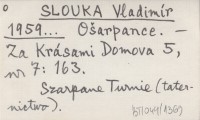 SLOUKA Vladimír
1959... Ošarpance. —
Za Krásami Domova 5,
nr 7: 163.
Szarpane Turnie (tater-
nictwo).